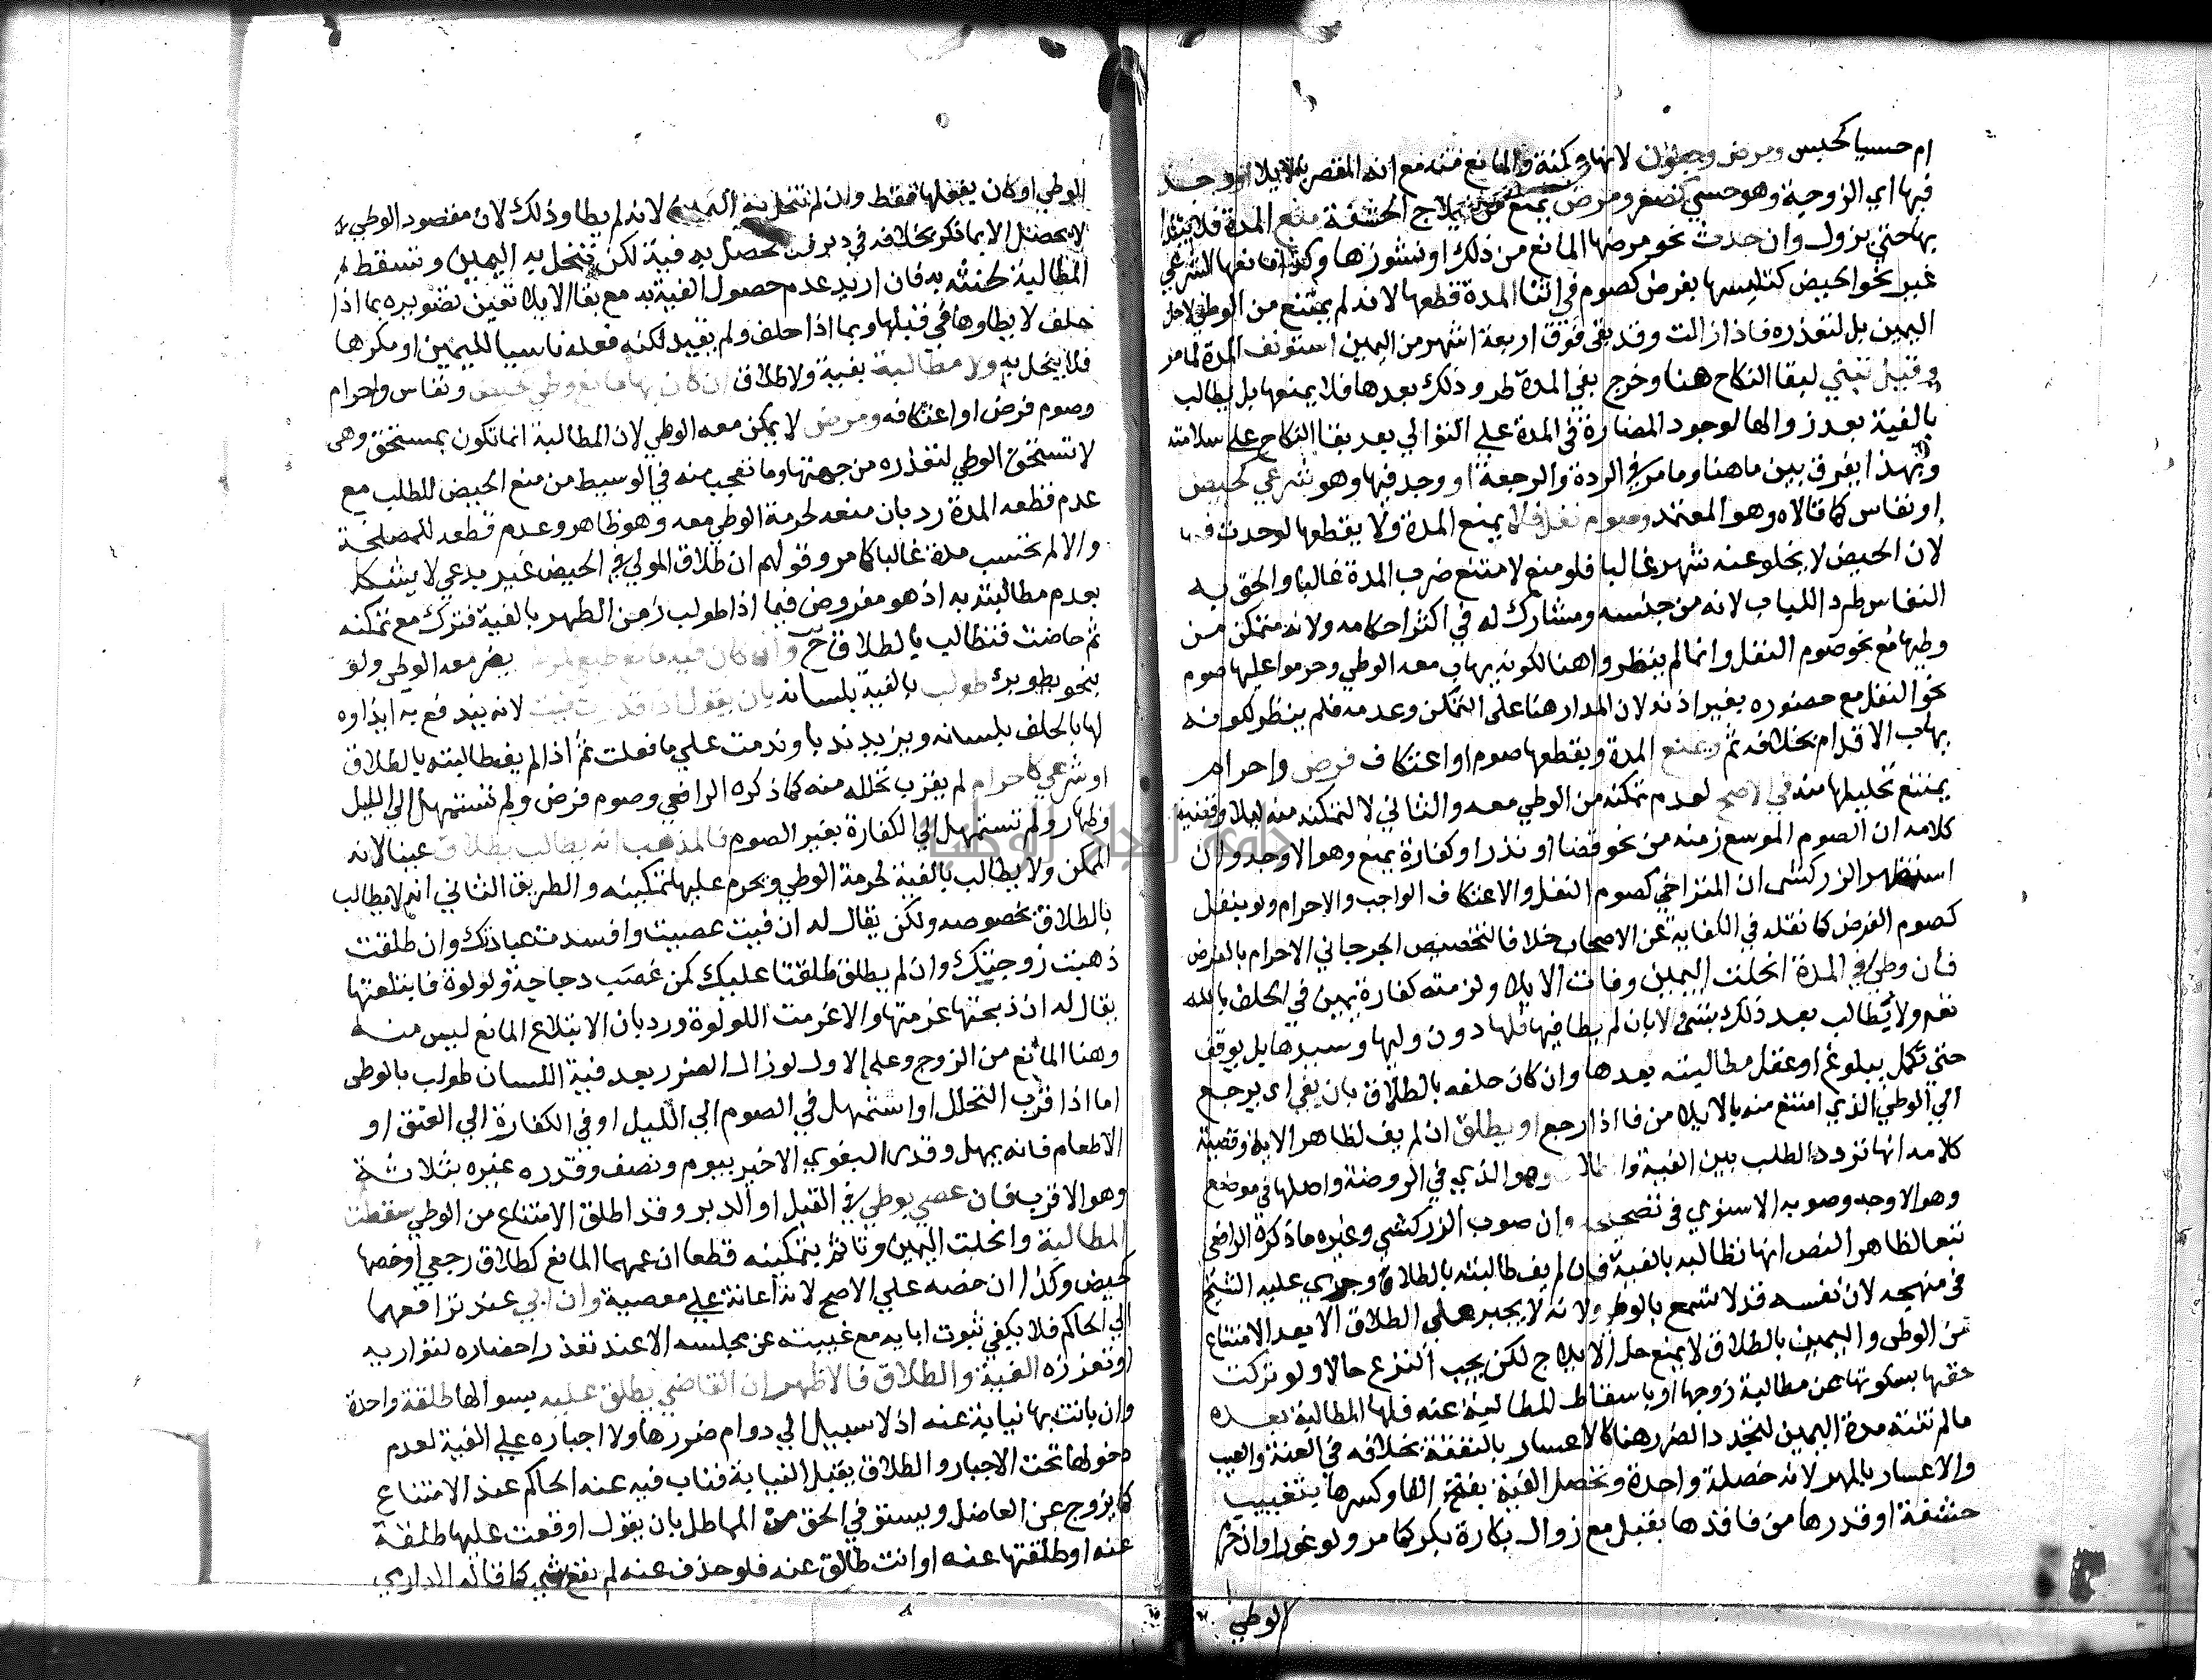 ام حسيا كحبس ومرض وجنون لانها ممكنة والمانع منه مع انه المقصر بالايلا او وجد
فيها اي الزوجية وهو حسي كصغر ومرض يمنع من ايلاج الحشفة منع المدة فلا يبتدا
بها حتي يزول وان حدث نحو مرضها المانع من ذلك او نشوزها وكذا مانعها الشرعي
غير نحو الحيض كتلبسها بفرض كصوم في اثنا المدة قطعها لانه لم يمتنع من الوطي لاجل
اليمين بل لتعذره فاذا زالت وقد بقي فوق اربعة اشهر من اليمين استونف المدة لما مر
وقيل تبني لبقا النكاح هنا وخرج بفي المدة طرو ذلك بعدها فلا يمنعها بل يطالب
بالفية بعد زوالها لوجود المضارة في المدة علي التوالي بعد بقا النكاح علي سلامته
وبهذا يفرق بين ما هنا وما مر في الردة والرجعة او وجد فيها وهو شرعي كحيض
او نفاس كما قالاه وهو المعتمد وصوم نفل فلا يمنع المدة ولا يقطعها لو حدث فيها
لان الحيض لا يخلو عنه شهر غالبا فلو منع لامتنع ضرب المدة غالبا والحق به
النفاس طردا للباب لانه من جنسه ومشارك له في اكثر احكامه ولانه متمكن من
وطيها مع نحو صوم النفل وانما لم ينظروا هنا لكونه يهاب معه الوطي وحرموا عليها صوم
نحو النفل مع حضوره بغير اذنه لان المدار هنا علي التمكن وعدمه فلم ينظر لكونه
يهاب الاقدام بخلافه ثم ويمنع المدة ويقطعها صوم او اعتكاف فرض واحرام
يمتنع تحليلها منه في الاصح لعدم تمكنه من الوطي معه والثاني لا لتمكنه منه ليلا وقضية
كلامه ان الصوم الموسع زمنه من نحو قضا او نذر او كفارة يمنع وهو الاوجه وان
استظهر الزركشي ان المتراخي كصوم النفل والاعتكاف الواجب والاحرام ولو بنفل
كصوم الفرض كما نقله في الكفاية عن الاصحاب خلافا لتخصيص الجرجاني الاحرام بالفرض
فان وطي في المدة انحلت اليمين وفات الايلا ولزمته كفارة يمين في الحلف بالله
تعم ولا يطالب بعد ذلك بشي ولا بان لم يطا فيها فلها دون وليها وسيدها بل يوقف
حتي تكمل ببلوغ او عقل مطالبته بعدها وان كان حلفه بالطلاق بان يفي اي يرجع
الي الوطي الذي امتنع منه بالايلا من فا اذا رجع او يطلق ان لم يف لظاهر الاية وقضية
كلامه انها تردد الطلب بين الفية والطلاق وهو الذي في الروضة واصلها في موضع
وهو الاوجه وصوبه الاسنوي في تصحيحه وان صوب الزركشي وغيره ما ذكره الرافعي
تبعا لظاهر النص انها تطالبه بالفية فان لم يف طالبته بالطلاق وجري عليه الشيخ
في منهجه لان نفسه قد لا تسمح بالوطي ولانه لا يجبر علي الطلاق الا بعد الامتناع
من الوطي واليمين بالطلاق لا يمنع حل الايلاج لكن يجب النزع حالا ولو تركت
حقها بسكوتها عن مطالبة زوجها او باسقاط المطالبة عنه فلها المطالبة بعده
ما لم تنته مدة اليمين لتجدد الضرر هنا كالاعسار بالنفقة بخلافه في العنة والعيب
والاعسار بالمهر لانه خصلة واحدة وتحصل الفية بفتح الفا وكسرها بتغييب
حشفة او قدرها من فاقدها بقبل مع زوال بكارة بكر كما مر ولو غورا وان حرم
الوطي
الوطي او كان يفعلها فقط وان لم تنحل به اليمين لانه لم يطا وذلك لان مقصود الوطي
لا يحصل الا بما ذكر بخلافه في دبر فلا يحصل به فية لكن تنحل به اليمين وتسقط
المطالبة لحنثه به فان اريد عدم حصول الفية به مع بقا الايلا تعين تصويره بما اذا
حلف لا يطاوها في قبلها وبما اذا حلف ولم يقيد لكنه فعله ناسيا لليمين او مكرها
فلا ينحل به ولا مطالبة بفية ولا طلاق ان كان بها مانع وطي كحيض ونفاس واحرام
وصوم فرض او اعتكافه ومرض لا يمكن معه الوطي لان المطالبة انما تكون بمستحق وهي
لا تستحق الوطي لتعذره من جهتها وما تعجب منه في الوسيط من منع الحيض للطلب مع
عدم قطعه المدة رد بان منعه لحرمة الوطي معه وهو ظاهر وعدم قطعه للمصلحة
والا لم تحتسب مدة غالبا كما مر وقولهم ان طلاق المولي في الحيض غير بدعي لا يشكل
بعدم مطالبته به اذ هو مفروض فيما اذا طولب زمن الطهر بالفية فترك مع تمكنه
ثم حاضت فتطالب بالطلاق ح وان كان فيه مانع طبيعي لمرض يضر معه الوطي ولو
بنحو بطو برء طولب بالفية بلسانه بان يقول اذا قدرت فيت لانه يندفع به ايذاوه
لها بالحلف بلسانه ويزيد ندبا وندمت علي ما فعلت ثم اذا لم يف طالبته بالطلاق
او شرعي كاحرام لم يقرب تحلله منه كما ذكره الرافعي وصوم فرض ولم تستمهل الي الليل
وظهار ولم تستمهل الي الكفارة بغير الصوم فالمذهب انه يطالب بطلاق عينا لانه
الممكن ولا يطالب بالفية لحرمة الوطي ويحرم عليها تمكينه والطريق الثاني انه لا يطالب
بالطلاق بخصوصه ولكن يقال له ان فيت عصيت وافسدت عبادتك وان طلقت
ذهبت زوجتك وان لم يطلق طلقنا عليك كمن غصب دجاجة ولولوة فابتلعتها
يقال له ان ذبحتها غرمتها والا غرمت اللولوة ورد بان الابتلاع المانع ليس منه
وهنا المانع من الزوج وعلي الاول لو زال الضرر بعد فية اللسان طولب بالوطي
اما اذا قرب التحلل او استمهل في الصوم الي الليل او في الكفارة الي العتق او
الاطعام فانه يمهل وقدر البغوي الاخير بيوم ونصف وقدره غيره بثلاثة
وهو الاقرب فان عصي بوطي في القبل او الدبر وقد اطلق الامتناع من الوطي سقطت
المطالبة وانحلت اليمين وتاثم بتمكينه قطعا ان عمهما المانع كطلاق رجعي او خصها
كحيض وكذا ان خصه علي الاصح لانه اعانة علي معصية وان ابي عند ترافعهما
الي الحاكم فلا يكفي ثبوت ابايه مع غيبته عن مجلسه الا عند تعذر احضاره لتواريه
او تعززه الفية والطلاق فالاظهر ان القاضي يطلق عليه بسوالها طلقة واحدة
وان بانت بها نيابة عنه اذ لا سبيل الي دوام ضررها ولا اجباره علي الفية لعدم
دخولها تحت الاجبار والطلاق يقبل النيابة فناب فيه عنه الحاكم عند الامتناع
كما يزوج عن العاضل ويستوفي الحق من المماطل بان يقول اوقعت عليها طلقة
عنه او طلقتها عنه او انت طالق عنه فلو حذف عنه لم يقع شي كما قاله الدارمي